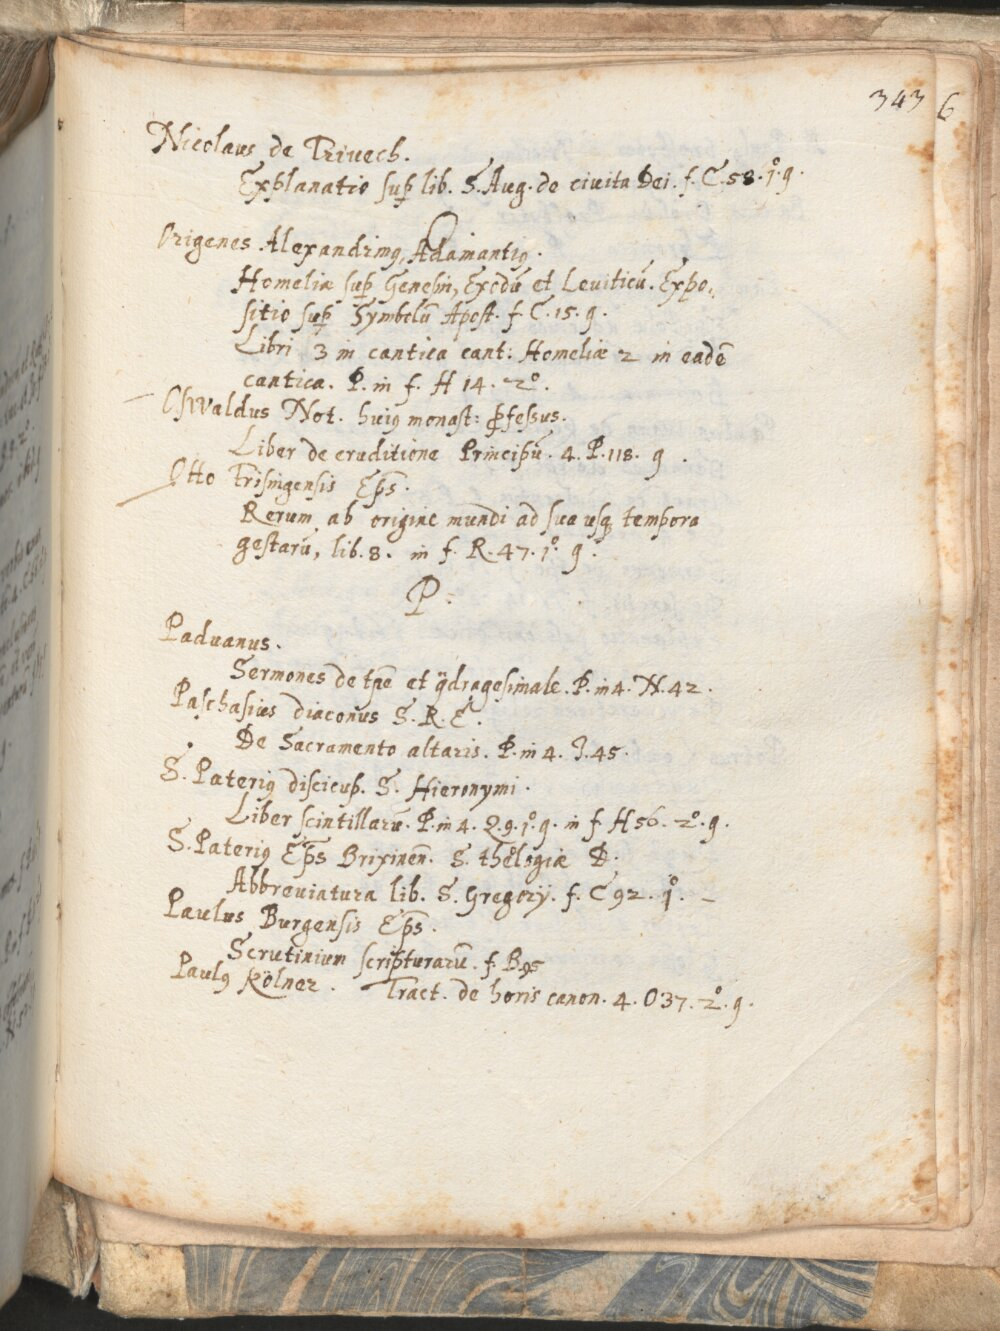 343 6
Nicolaus de Trivech.
Explanatio sup̱ lib. S. Aug. de civita Dei. f. C. 58. 1º. g.
O
Origenes Alexandrinꝰ, Adamantiꝰ.
Homeliæ sup̱ Genesin, Exodū et Leviticū. Expo-
sitio sup̱ Symbolū Apost. f C. 15. g.
Libri 3 in cantica cant: Homeliæ 2 in eadē
cantica. P. in f. H 14. 2º.
Oswaldus Not. huiꝰ monast: ꝓfessus.
Liber de eruditione Principū. 4. P. 118. g.
Otto Frisingensis Ep̄s.
Rerum ab origine mundi ad sua usq tempora
gestarū, lib. 8. in f. R. 47. 1º. g.
P.
Paduanus.
Sermones de tp̄e et q̈dragesimale. P. in 4. N. 42.
Paschasius diaconus S. R. E.
De Sacramento altaris. P. in 4. J. 45.
S. Pateriꝰ discicup. S. Hieronymi.
Liber scintillarū. P. in 4. Q. 9. 1º. g. in f H 56. 2º. g.
S. Pateriꝰ Ep̄s Brixinen. S. theologiæ D.
Abbreviatura lib. S. Gregorÿ. f. C 92. 1º.
Paulus Burgensis Ep̄s.
Scrutinium scripturarū. f B 95
Paulꝰ Kölner. Tract. de horis canon. 4. O 37. 2º. g.